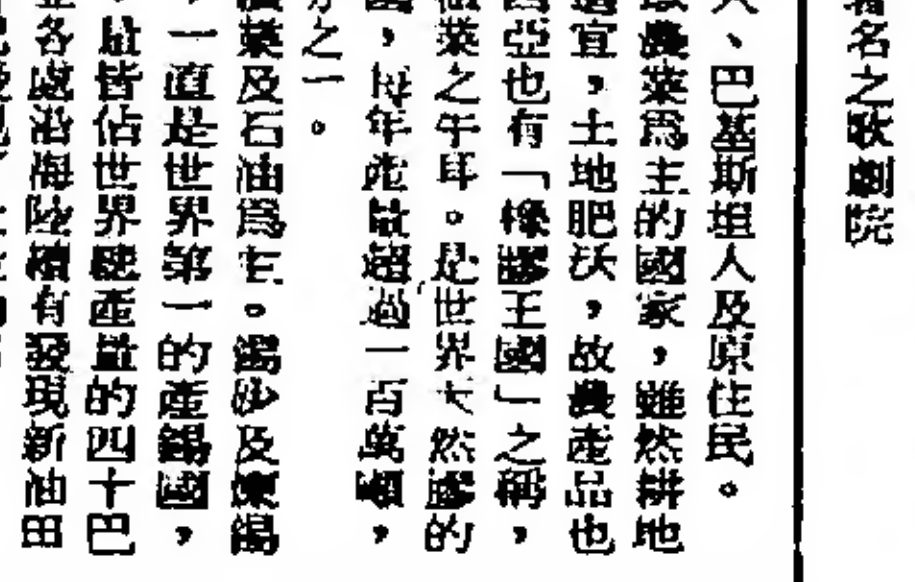 著名之歌劇院
人、巴基斯坦人及原住民。
農業爲主的國家，雖然耕地
適宜，土地肥沃，故農產品也
西亞也有「橡膠王國」之稱，
業之牛耳。是世界天然膠的
，每年產量超過一百萬噸，
之一。
業及石油爲主。錫沙及煉錫
，一直是世界第一的產錫國，
，量皆佔世界總產量的四十巴
各處沿海陸續有發現新油田